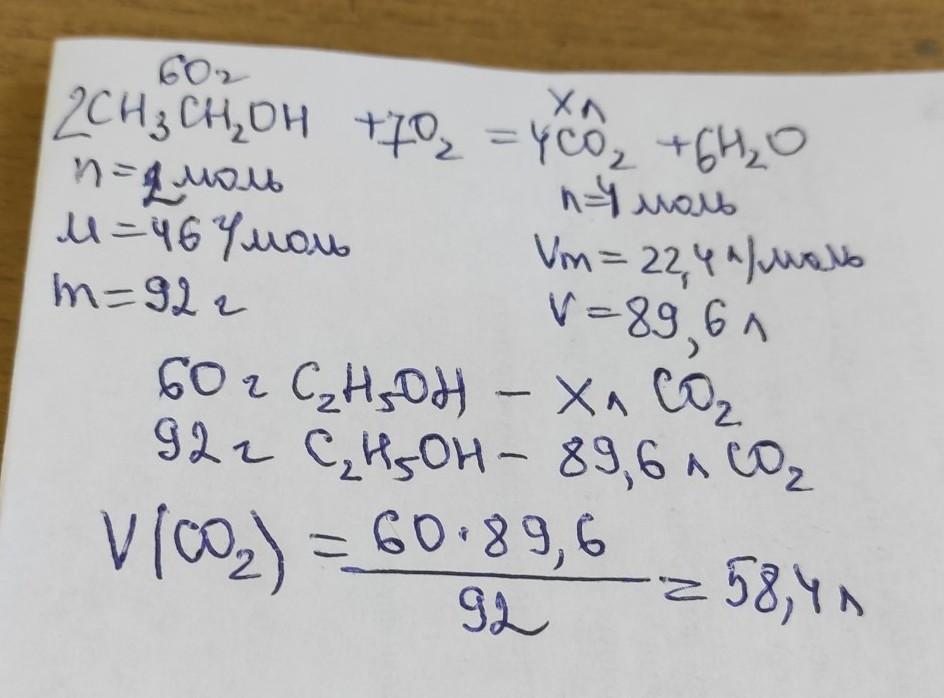 60г xл
2CH₃CH₂OH + 7O₂ = 4CO₂ + 6H₂O
n=2 моль n=4 моль
M=46 г/моль Vm = 22,4 л/моль
m=92 г V=89,6 л
60 г C₂H₅OH – xл CO₂
92 г C₂H₅OH – 89,6 л CO₂
V(CO₂) = 60·89,6 / 92 = 58,4 л